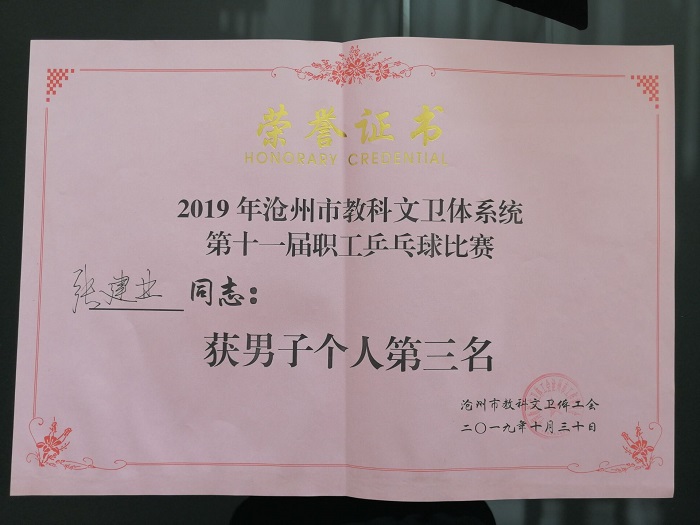 荣誉证书
HONORARY CREDENTIAL
2019 年沧州市教科文卫体系统
第十一届职工乒乓球比赛
张建业 同志：
获男子个人第三名
沧州市教科文卫体工会
二〇一九年十月三十日